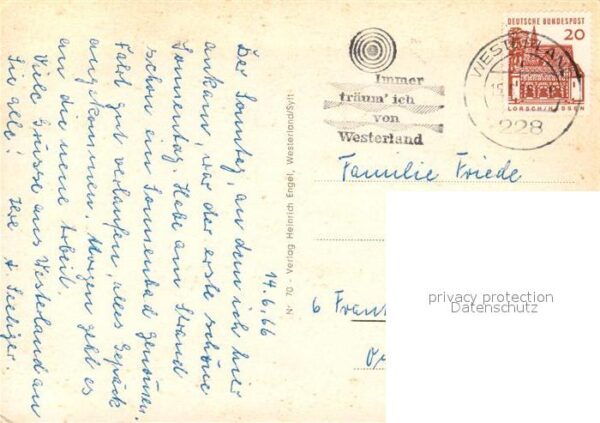 14.6.66
Der Sonntag, an dem ich hier
ankam, war der erste schöne
Sonnentag. Habe am Strand
schon ein Sonnenbad genommen.
Fahrt gut verlaufen, alles Gepäck
angekommen. Morgen geht es
an die neue Arbeit.
Viele Grüsse aus Westerland an
Sie alle!
Nr. 70 - Verlag Heinrich Engel, Westerland/Sylt
Immer
träum' ich
von
Westerland
WESTERLAND
228
DEUTSCHE BUNDESPOST
20
LORSCH/HESSEN
Familie Friede
6 Frank
privacy protection
Datenschutz